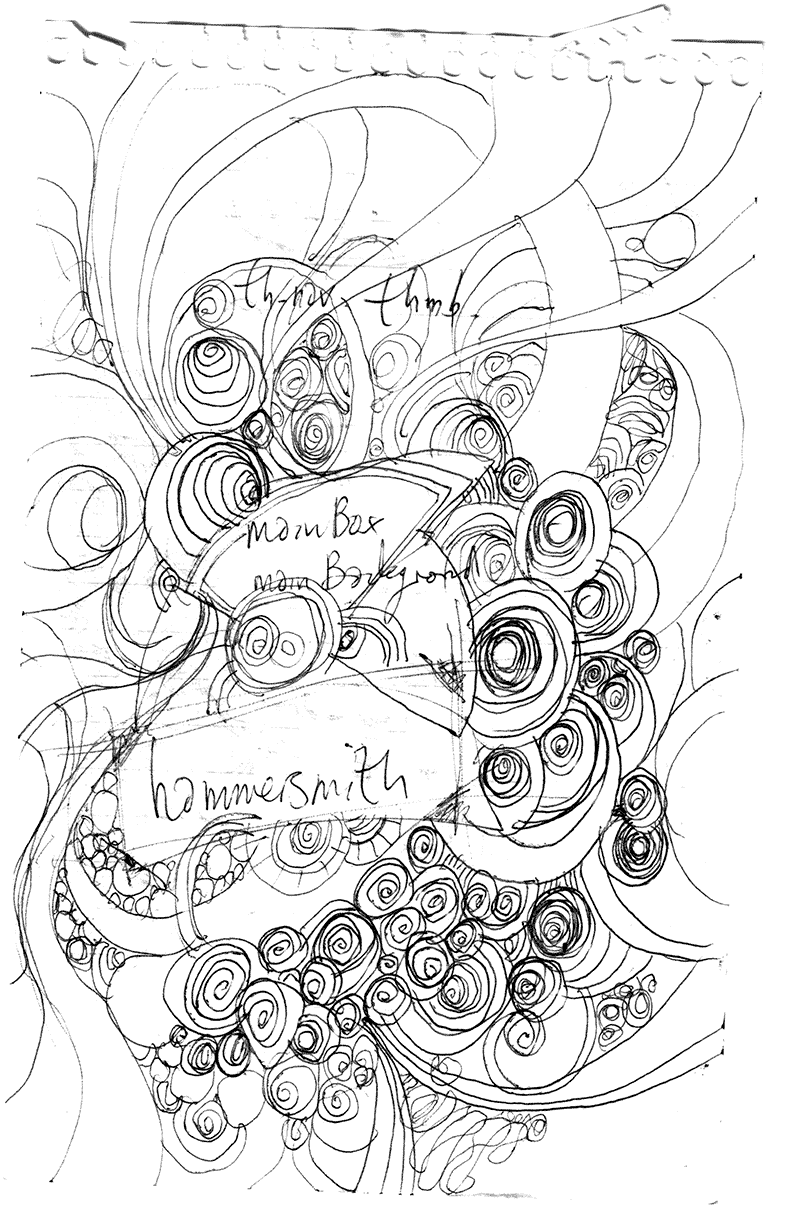 thmb.
main Box
main Backgrond
hammersmith